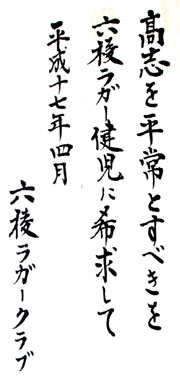 高志を平常とすべきを
六稜ラガー健児に希求して
平成十七年四月
六稜ラガークラブ